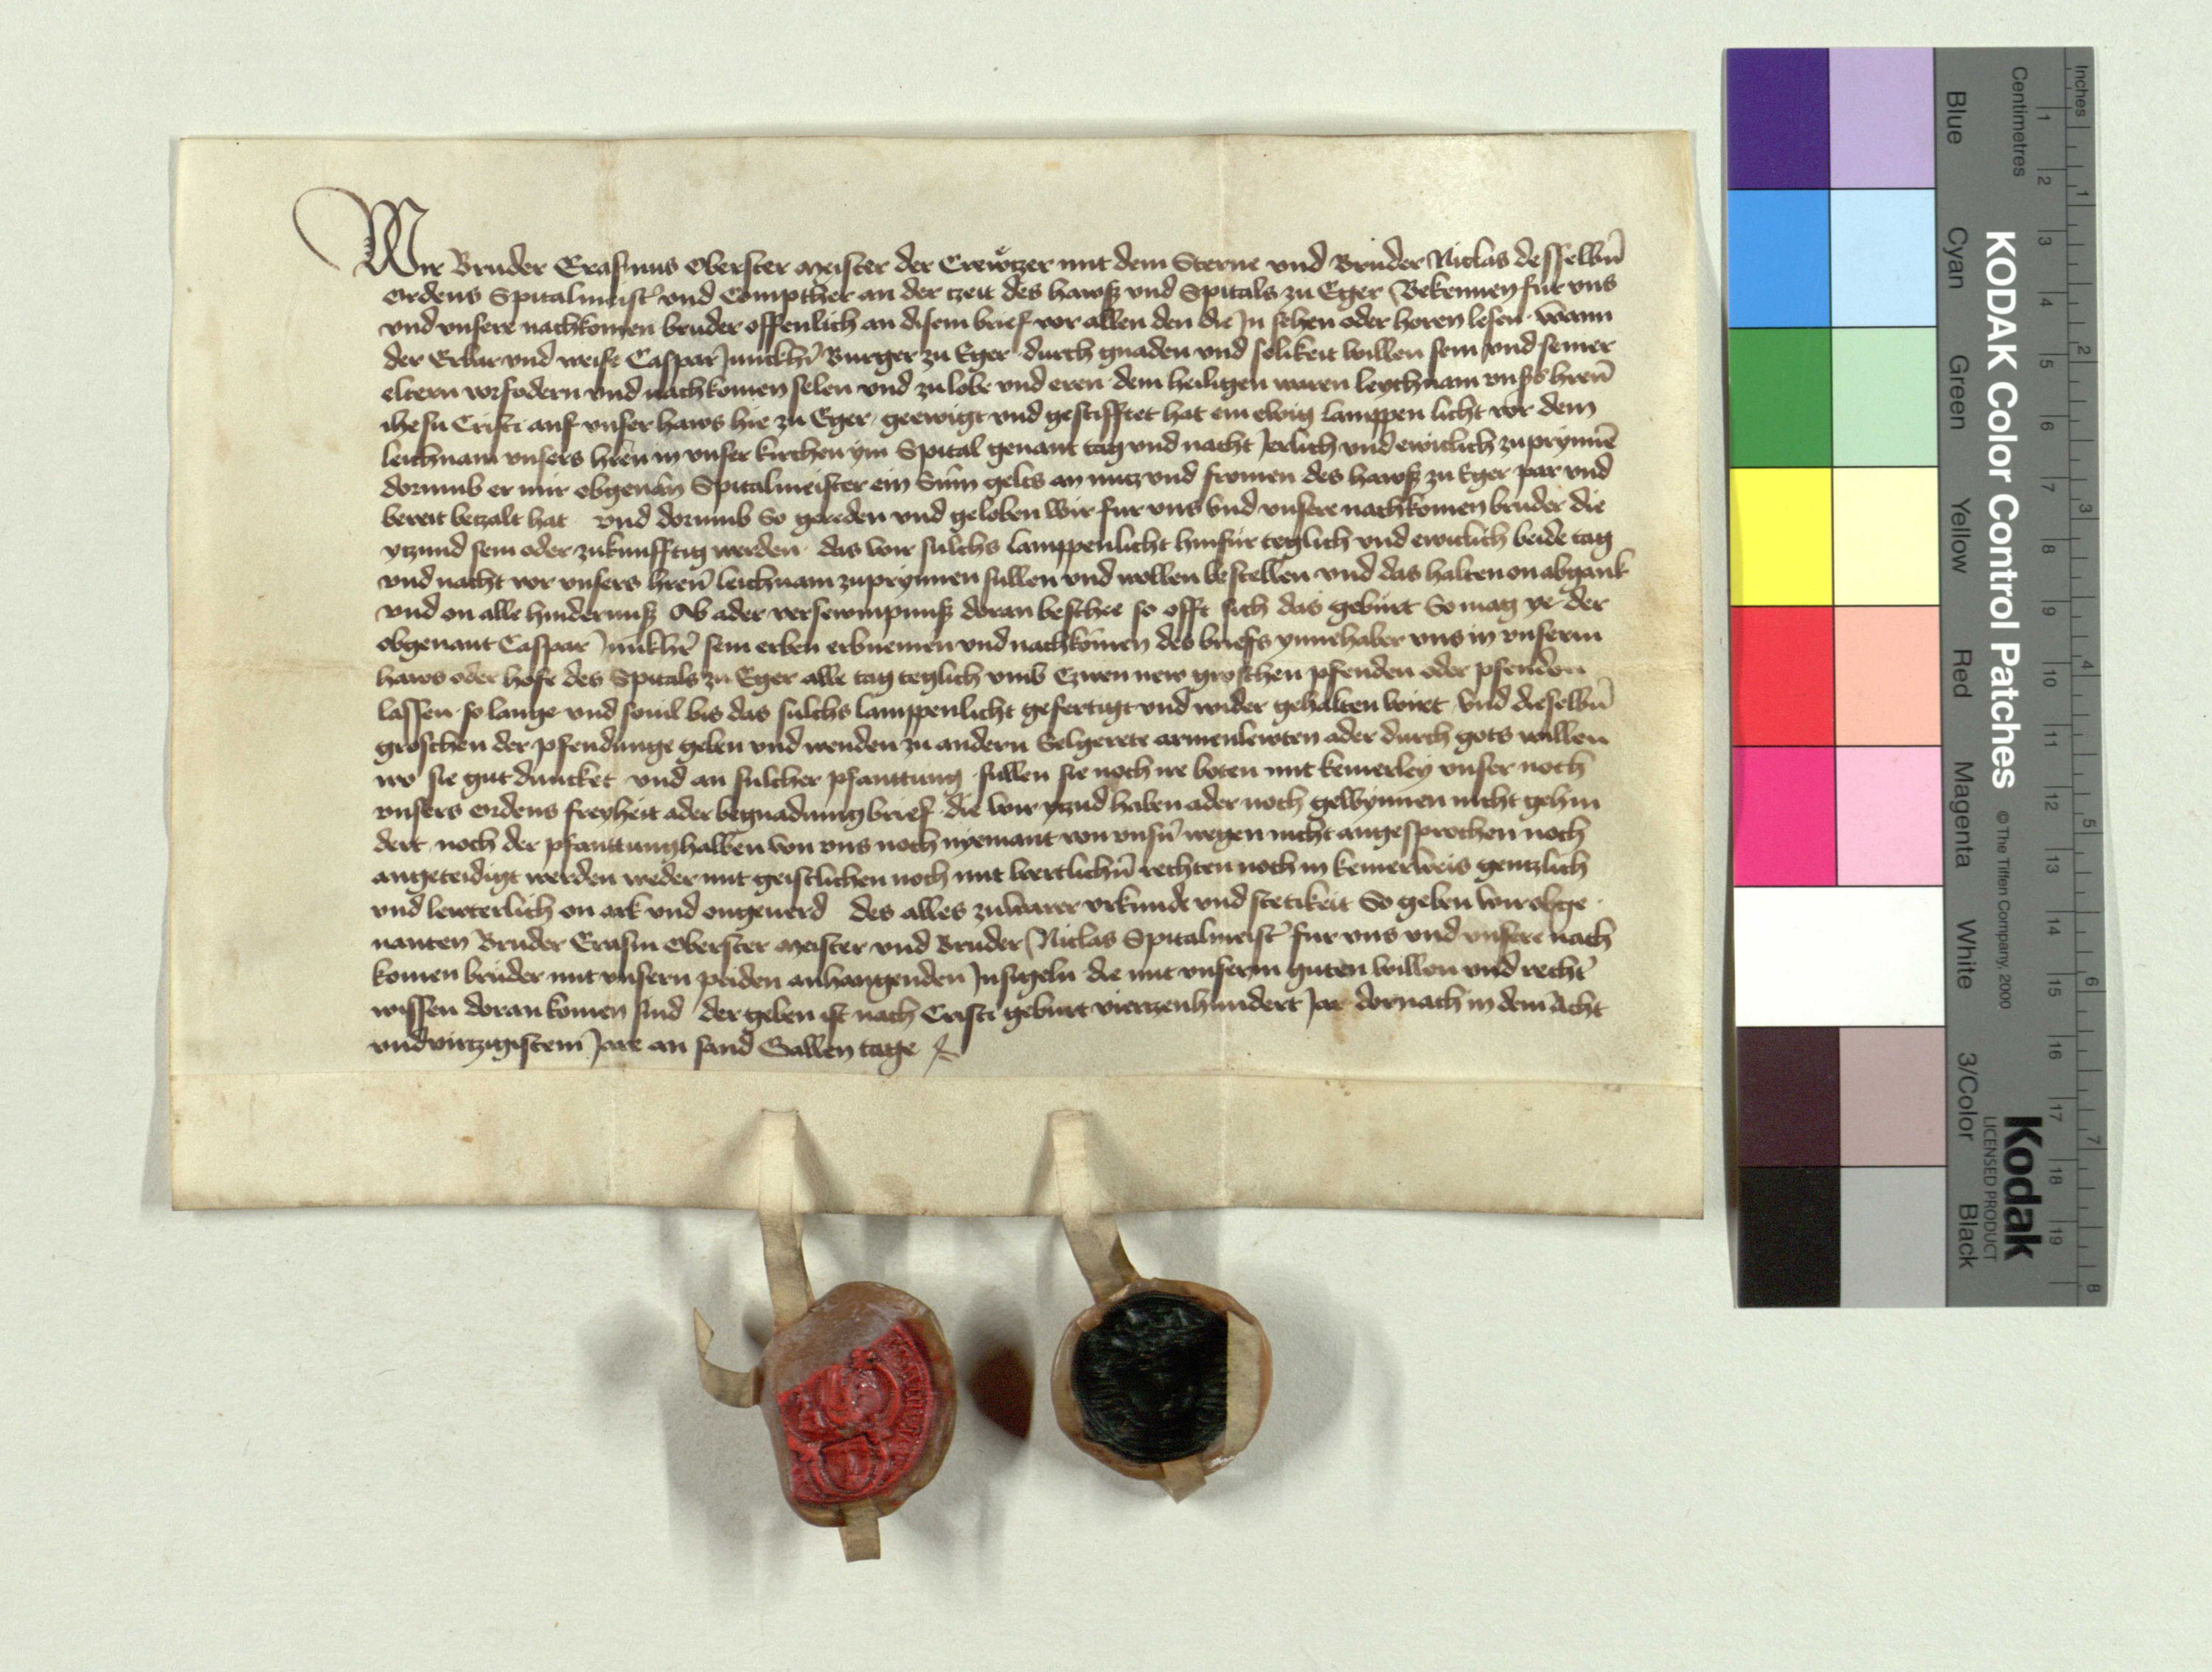 Wir Bruder Erasmus Oberster meister der Crewtzer mit dem Sterne vnd Bruder Niclas desselbn̄
ordens Spitalmeist͛ vnd Compther an der czeit des hawsz vnd Spitals zu Eger Bekennen fur vns
vnd vnsere nachkomen bruder offenlich an disem brief vor allen den die Jn sehen oder horen lesen · wann
der Erbar vnd weise Caspar Junckhr̄ Burger zu Eger durch gnaden vnd selikeit willen sein vnd seiner
eltern vorfodern vnd nachkomen selen vnd zu lobe vnd eren dem heiligen waren leychnam vnss hren̄
ihesu Cristi auf vnser haws hie zu Eger geewigt vnd gestifftet hat ein ewig lamppen licht vor dem
leichnam vnsers hren̄ in vnser kirchen ym Spital genant tag vnd nacht Jerlich vnd ewiclich zuprynnē
dorumb er mir obgenan̄ Spitalmeister ein Sum̄ gelts an nutz vnd fromen des hawsz zu Eger par vnd
bereit betzalt hat · vnd dorumb So gereden vnd geloben Wir fur vns vnd vnsere nachkomen bruder die
ytzund sein oder zukunfftig werden · das wir sulchs lamppenlicht hinfur teglich vnd ewiclich beide tag
vnd nacht vor vnsers hren̄ leichnam zuprynnen sullen vnd wollen bestellen vnd das halten on abgank
vnd on alle hindernusz Ob ader versewmpnusz doran beschee so offt sich das geburt So mag ye der
obgenant Caspar Junckhr̄ sein erben erbnemen vnd nachkomen des briefs ynnehaber vns in vnserm
haws oder hofe des Spitals zu Eger alle tag teglich vmb Czwen new groschen pfenden oder pfenden
lassen so lange vnd souil bis das sulchs lamppenlicht gefertigt vnd wider gehalten wirt vnd dieselbn̄
groschen der pfendunge geben vnd wenden zu andern Selgerete armenlewten ader durch gots willen
wo sie gut duncket vnd an sulcher pfanttung sullen sie noch ire boten mit keinerley vnser noch
vnsers ordens freyheit ader begnadung brief die wir ytzud haben ader noch gewynnen nicht gehin
dert noch der pfanttung halben von vns noch nyemant von vnsn̄ wegen nicht angesprochen noch
angeteidigt werden weder mit geistlichen noch mit werltlichn̄ rechten noch in keinerweis gentzlich
vnd lewterlich on ark vnd ongeuerd des alles zu warer vrkunde vnd stetikeit So geben wir obge
nanten Bruder Erasm Oberster meister vnd Bruder Niclas Spitalmeist͛ fur vns vnd vnsere nach
komen bruder mit vnsern peiden anhangenden Jnsigeln die mit vnserm guten willen vnd recht͛
wissen doran komen sind der geben ist nach Cristi geburt vierzenhundert Jar dornach in dem Acht
vnd virtzigistem Jare an sand Gallen tage
KODAK Color Control Patches
© The Tiffen Company, 2000
Kodak
LICENSED PRODUCT
Inches
Centimetres
Blue Cyan Green Yellow Red Magenta White 3/Color Black
1 2 3 4 5 6 7 8 9 10 11 12 13 14 15 16 17 18 19
1 2 3 4 5 6 7 8